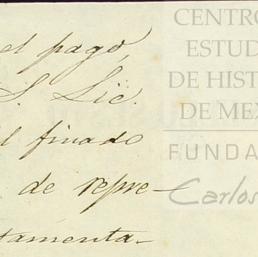 el pago,
S. Lic.
l finado
de repre-
tamenta-
CENTRO
ESTUD
DE HIST
DE MEX
FUNDA
Carlos